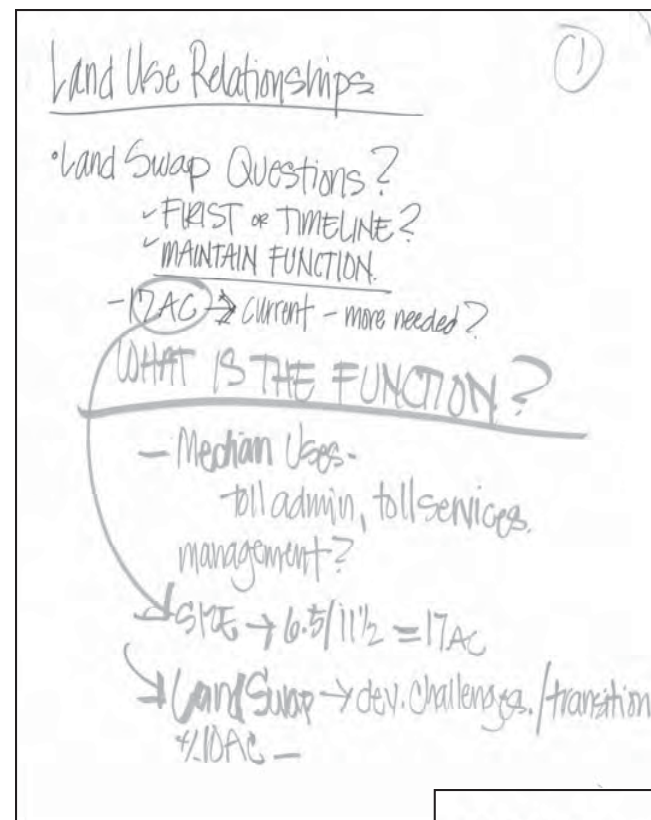 Land Use Relationships
1
• Land Swap Questions?
✓ FIRST OR TIMELINE?
✓ MAINTAIN FUNCTION.
- 17AC → current - more needed?
WHAT IS THE FUNCTION?
- Median Uses -
toll admin, toll services.
management?
SIZE → 6.5/11½ = 17AC
Land Swap → dev. challenges./transition
+/- 10AC -